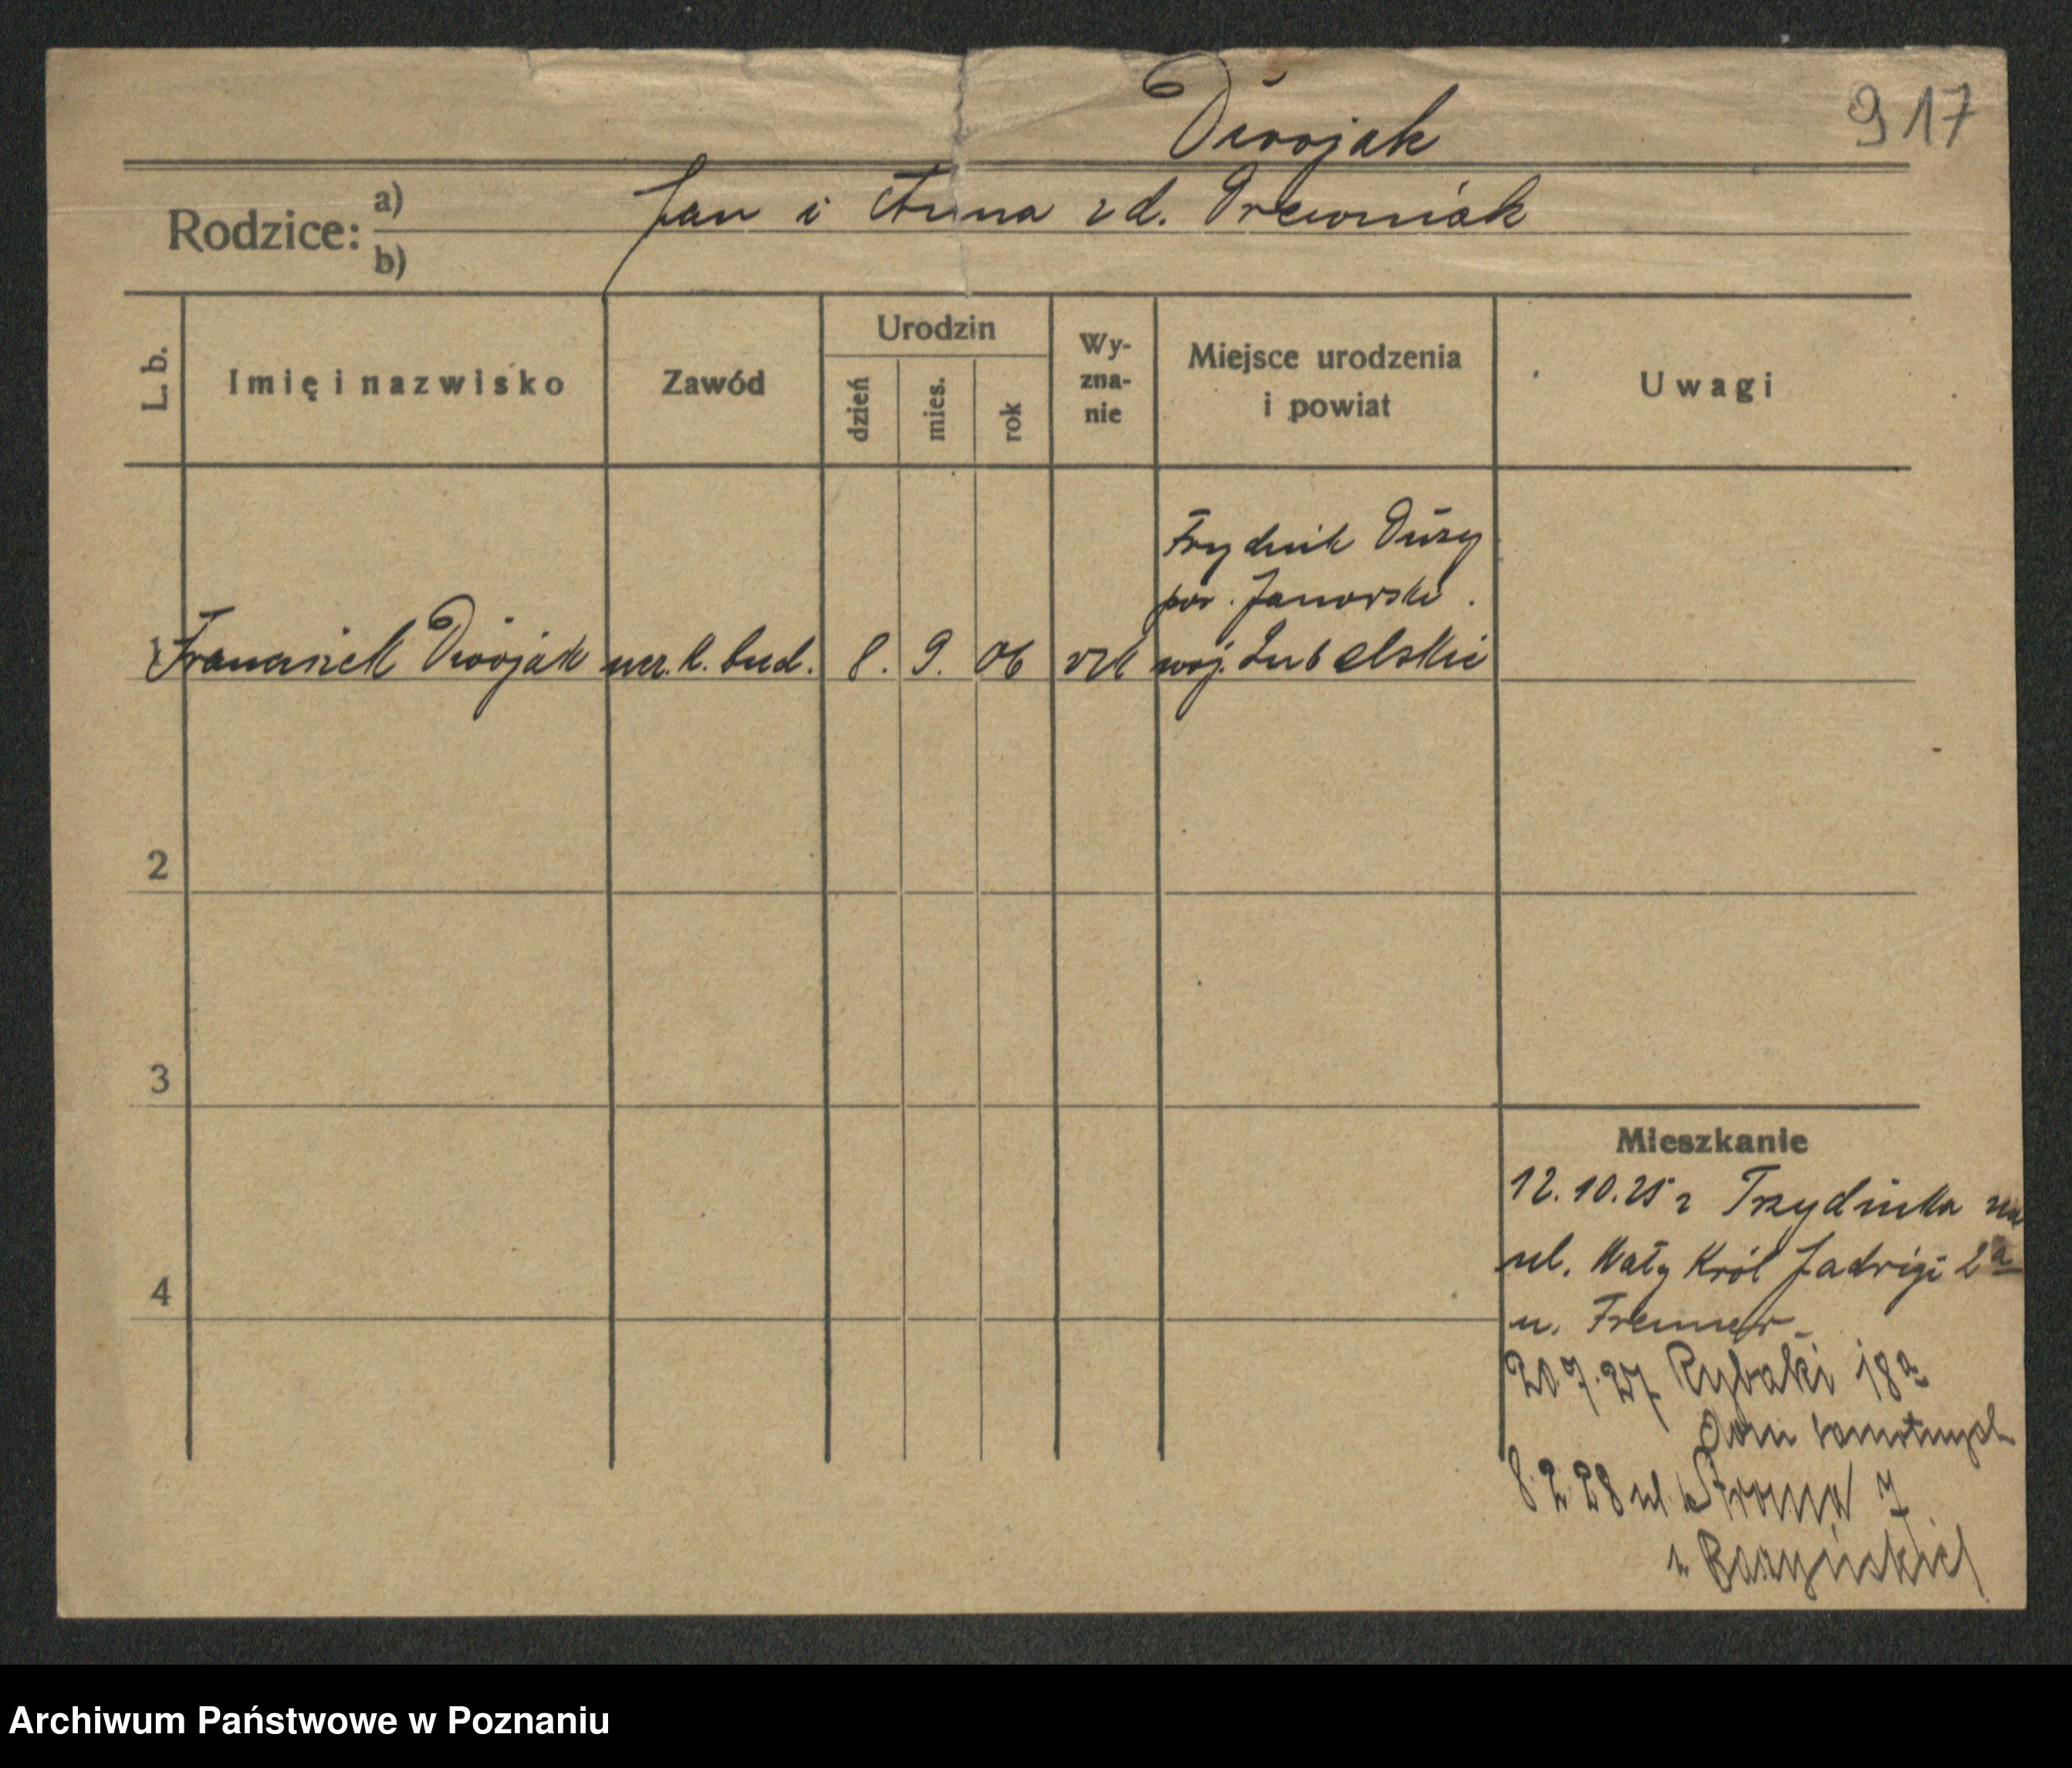 Dwojak
917
Rodzice: a) Jan i Anna zd. Drewniak
b)
L. b. Imię i nazwisko Zawód Urodzin dzień mies. rok Wy-zna-nie Miejsce urodzenia i powiat Uwagi
Trydnik Duży
pow. Janowski.
1 Franciszek Dwojak ucz. k. bud. 8. 9. 06 rzk woj. Lubelskie
2
3
4
Mieszkanie
12.10.25 z Trzydnika na
ul. Wały Król Jadwigi 2a
u.
20.7.27 Rybaki 18a
Dom
8.2.28 ul. Stroma 7
Archiwum Państwowe w Poznaniu